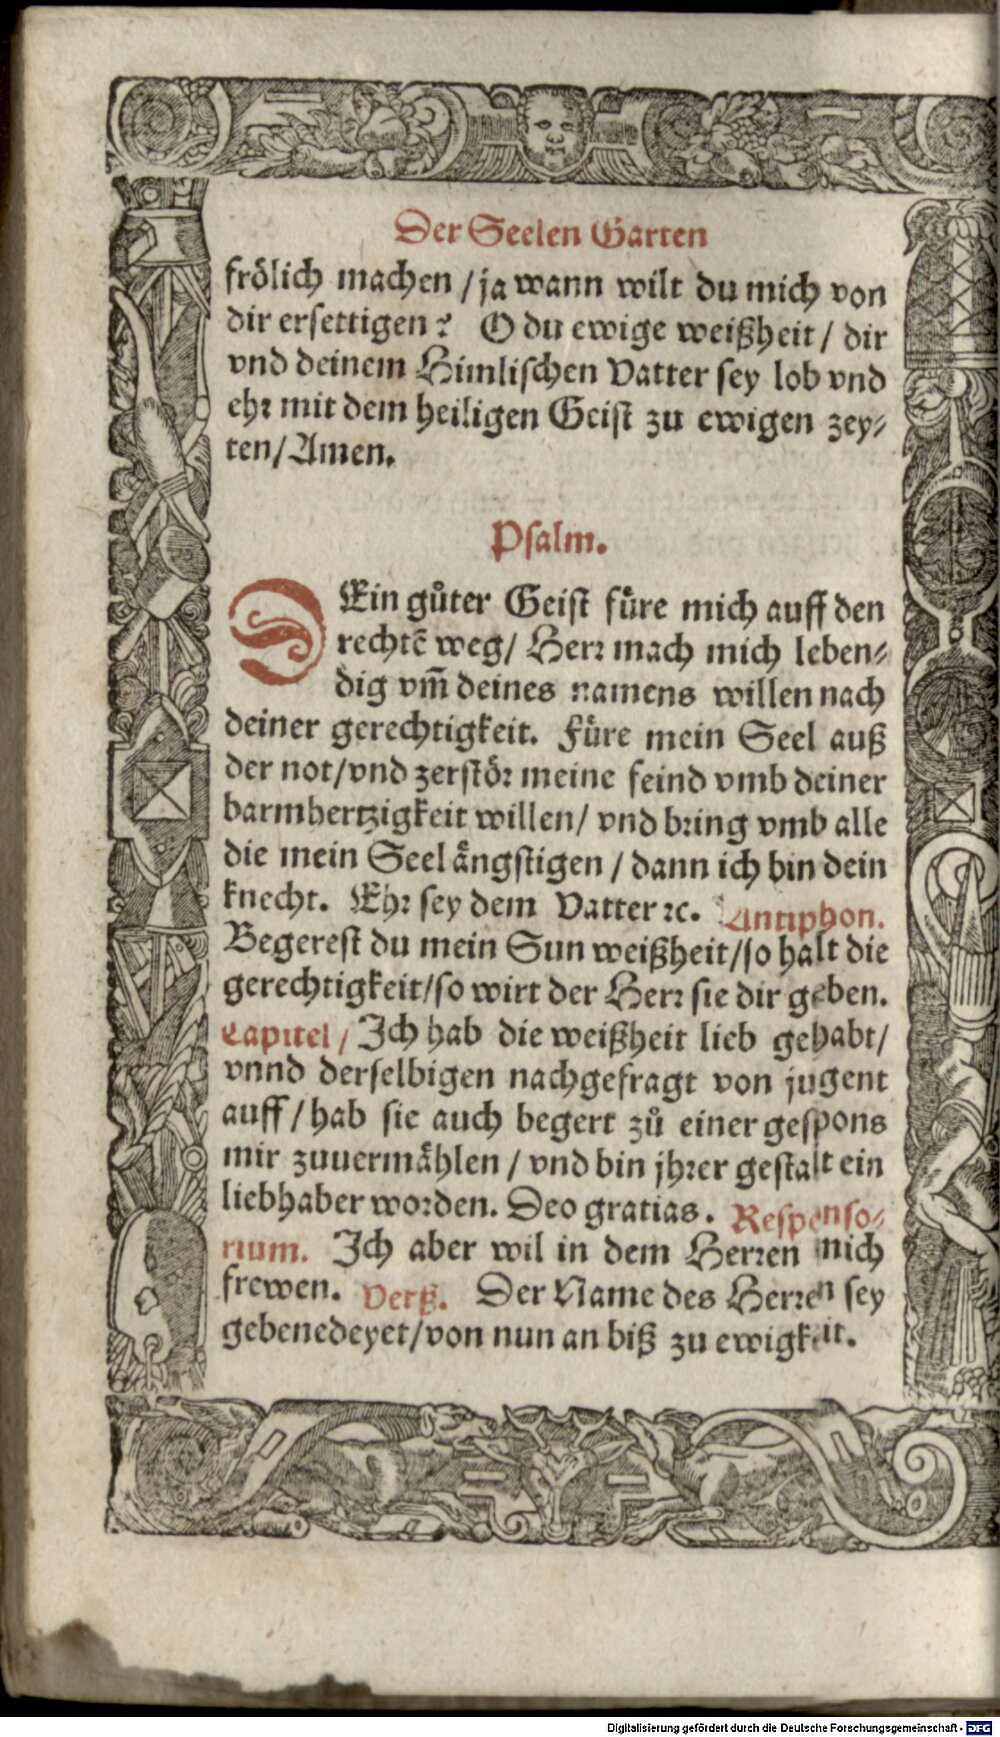 Der Seelen Garten
frölich machen / ja wann wilt du mich von
dir ersettigen? O du ewige weißheit / dir
vnd deinem Himlischen Vatter sey lob vnd
ehr mit dem heiligen Geist zu ewigen zey-
ten / Amen.
Psalm.
DEin gůter Geist fůre mich auff den
rechtẽ weg / Herr mach mich leben-
dig vm̃ deines namens willen nach
deiner gerechtigkeit. Fůre mein Seel auß
der not / vnd zerstör meine feind vmb deiner
barmhertzigkeit willen / vnd bring vmb alle
die mein Seel ångstigen / dann ich bin dein
knecht. Ehr sey dem Vatter ꝛc. Antiphon.
Begerest du mein Sun weißheit / so halt die
gerechtigkeit / so wirt der Herr sie dir geben.
Capitel / Ich hab die weißheit lieb gehabt /
vnnd derselbigen nachgefragt von jugent
auff / hab sie auch begert zů einer gespons
mir zuuermåhlen / vnd bin jhrer gestalt ein
liebhaber worden. Deo gratias. Responso-
rium. Ich aber wil in dem Herren mich
frewen. Verß. Der Name des Herren sey
gebenedeyet / von nun an biß zu ewigkeit.
Digitalisierung gefördert durch die Deutsche Forschungsgemeinschaft - DFG